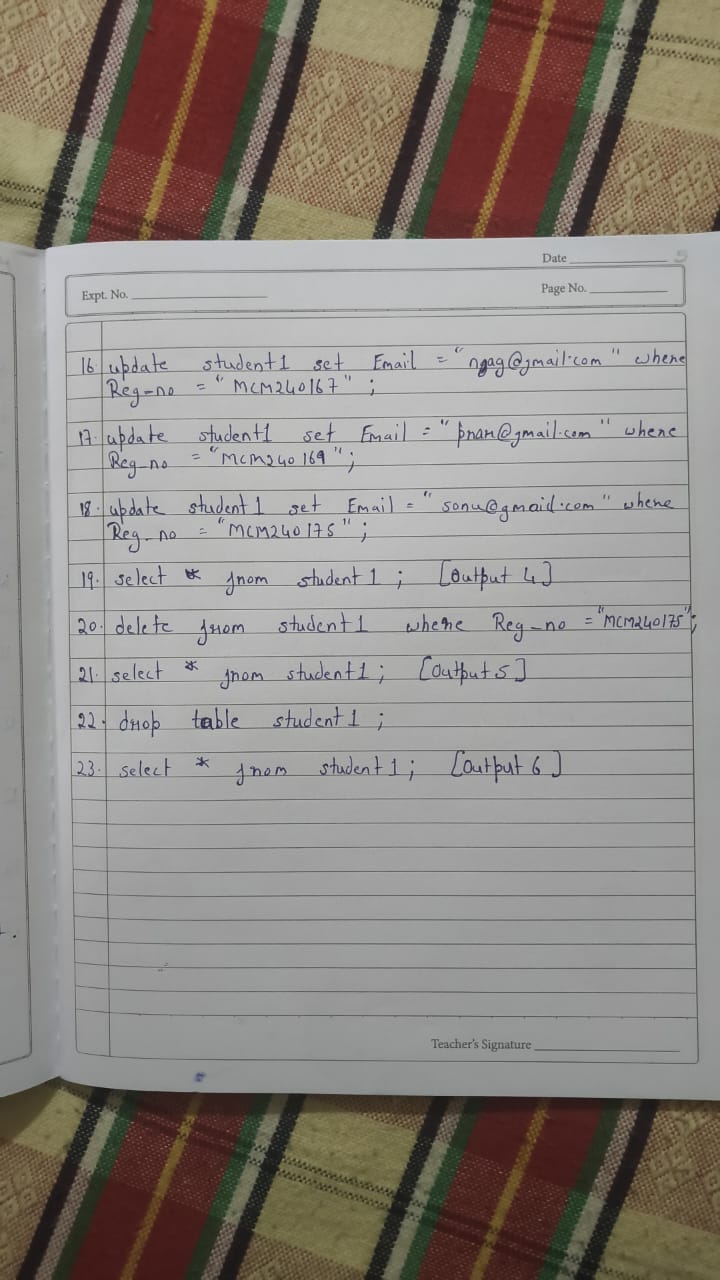 Date
Expt. No.
Page No.
16 update student1 set Email = "ngag@gmail.com" where
Reg-no = "MCM240167" ;
17. update student1 set Email = "pnam@gmail.com" where
Reg_no = "MCM240169" ;
18. update student1 set Email = "sonu@gmail.com" where
Reg_no = "MCM240175" ;
19. select * from student1 ; [Output 4]
20. delete from student1 where Reg_no = "MCM240175" ;
21. select * from student1 ; [Output 5]
22. drop table student1 ;
23. select * from student1 ; [Output 6]
Teacher's Signature